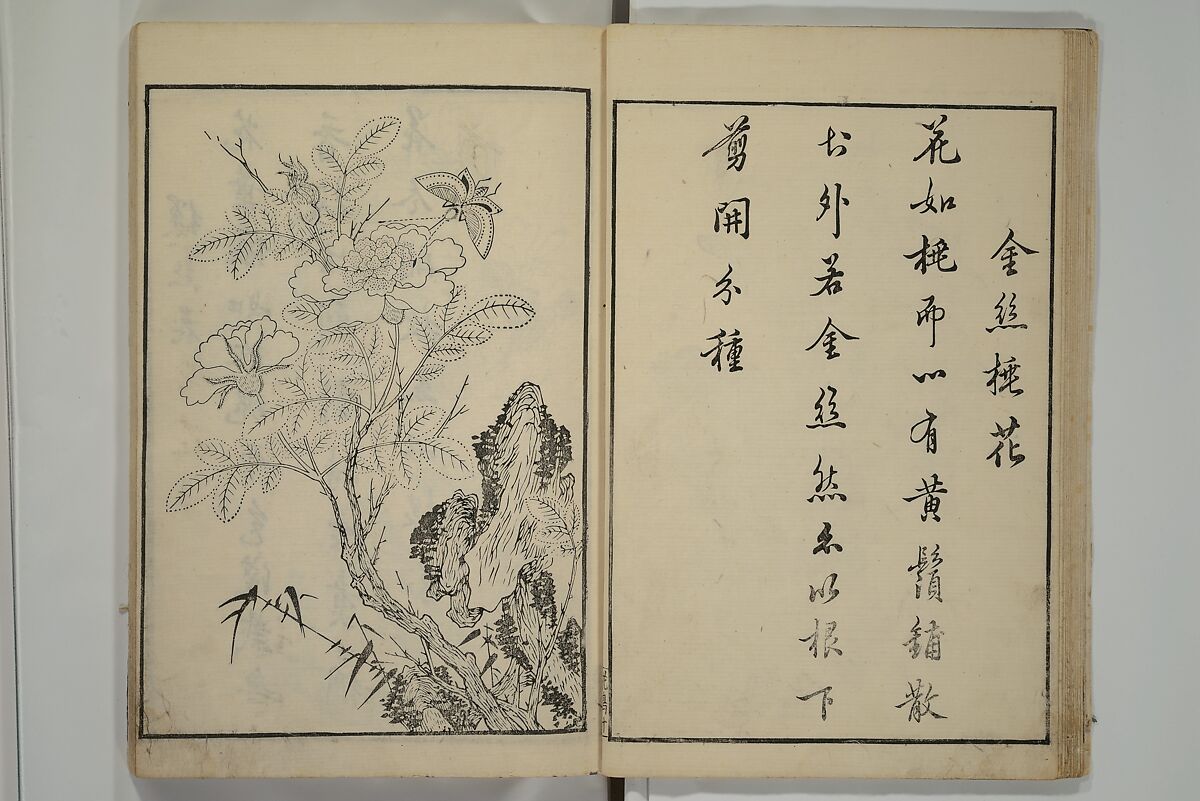 金絲桃花
花如桃而心有黃鬚鋪散
於外若金絲然亦以根下
剪開分種